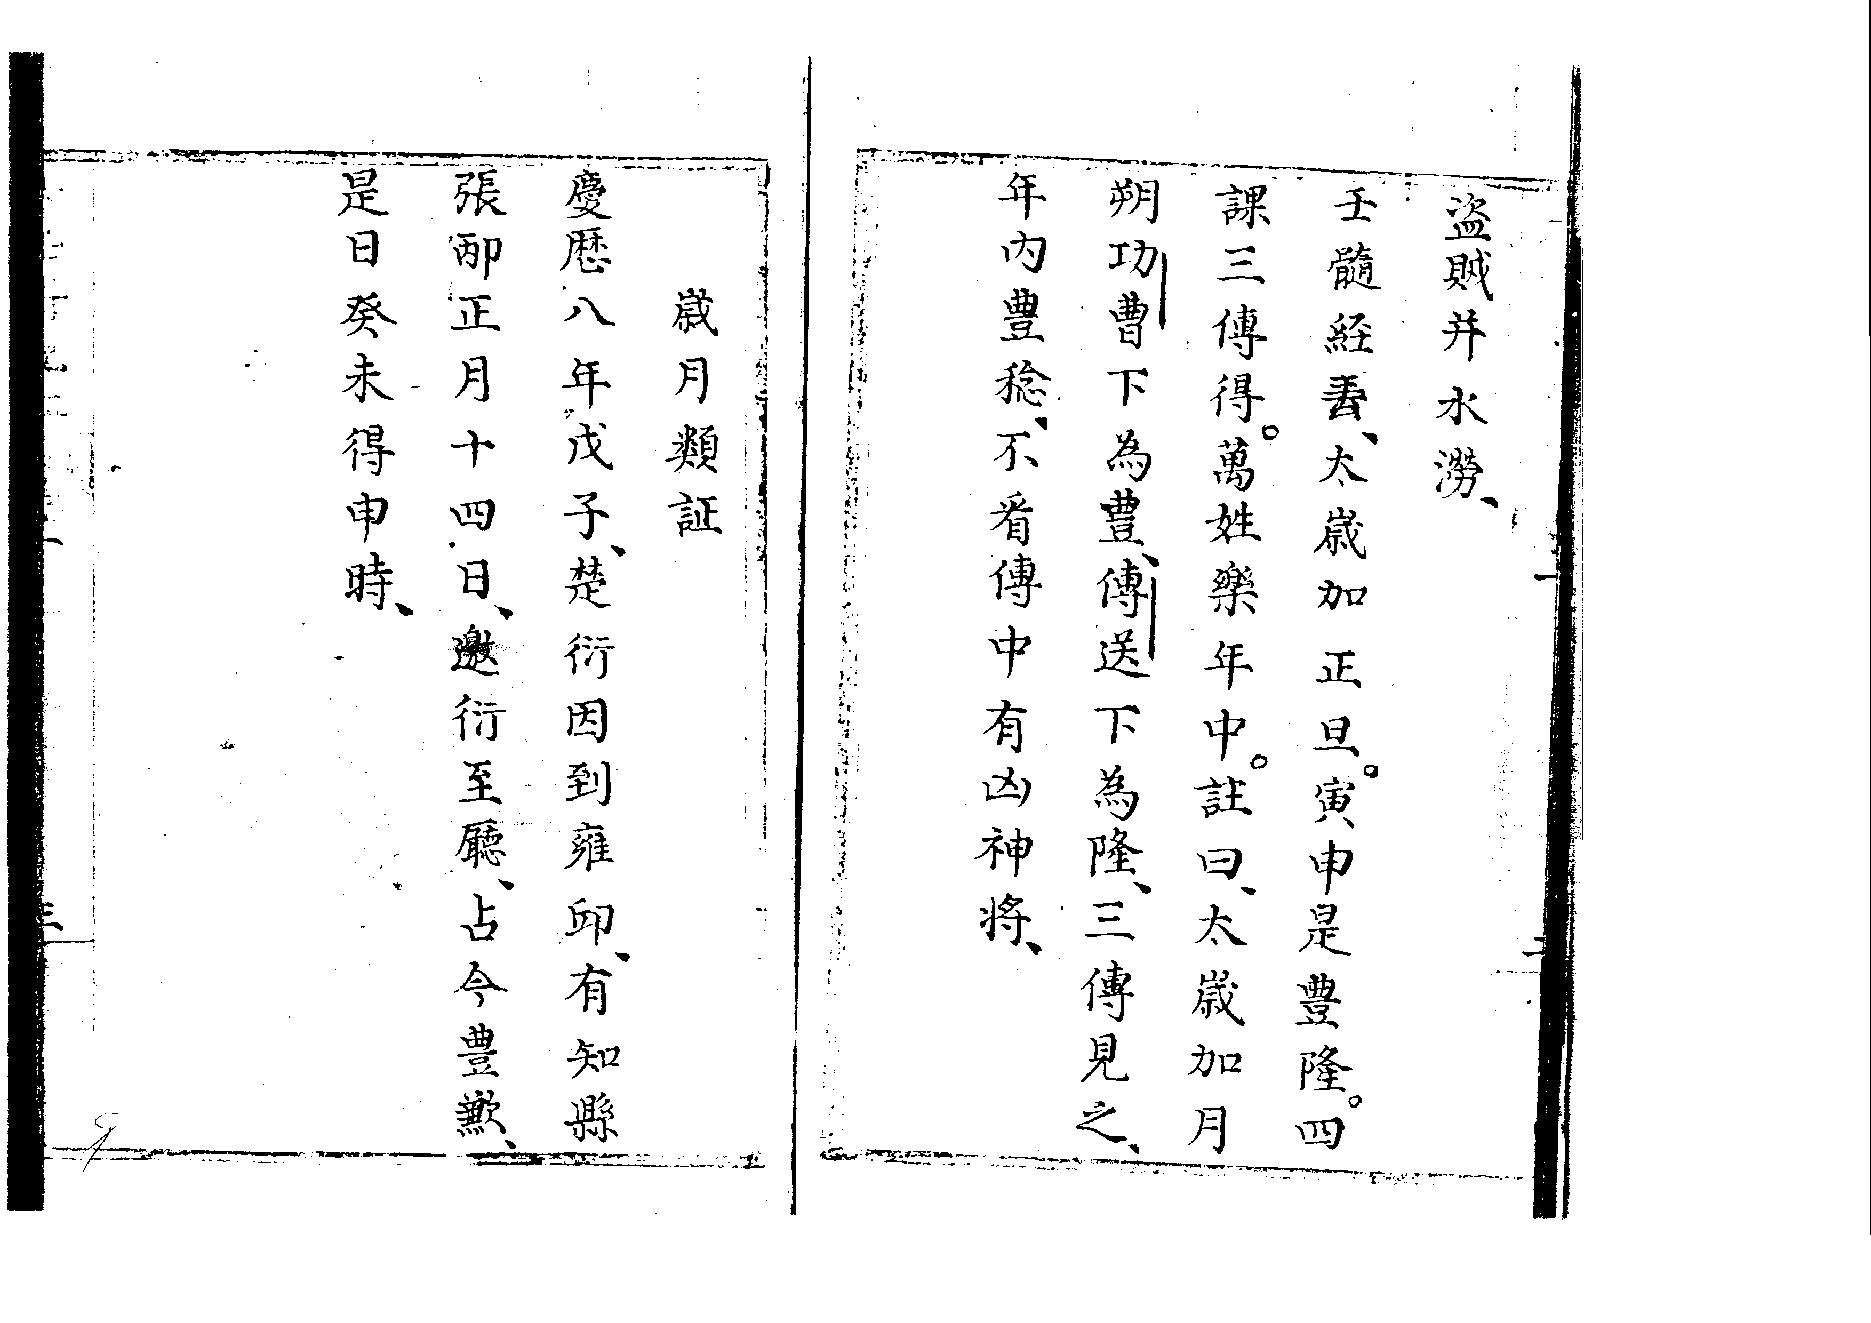 盗賊并水澇、
壬髓経云、太歲加正旦。寅申是豊隆。四
課三傳得。萬姓樂年中。註曰、太歲加月
朔功曹下為豊、傳送下為隆、三傳見之、
年內豊稔、不看傳中有凶神将、
歲月類証
慶歴八年戊子、楚衍因到雍邱、有知縣
張正月十四日、邀衍至廳、占今豊歉、
是日癸未得申時、